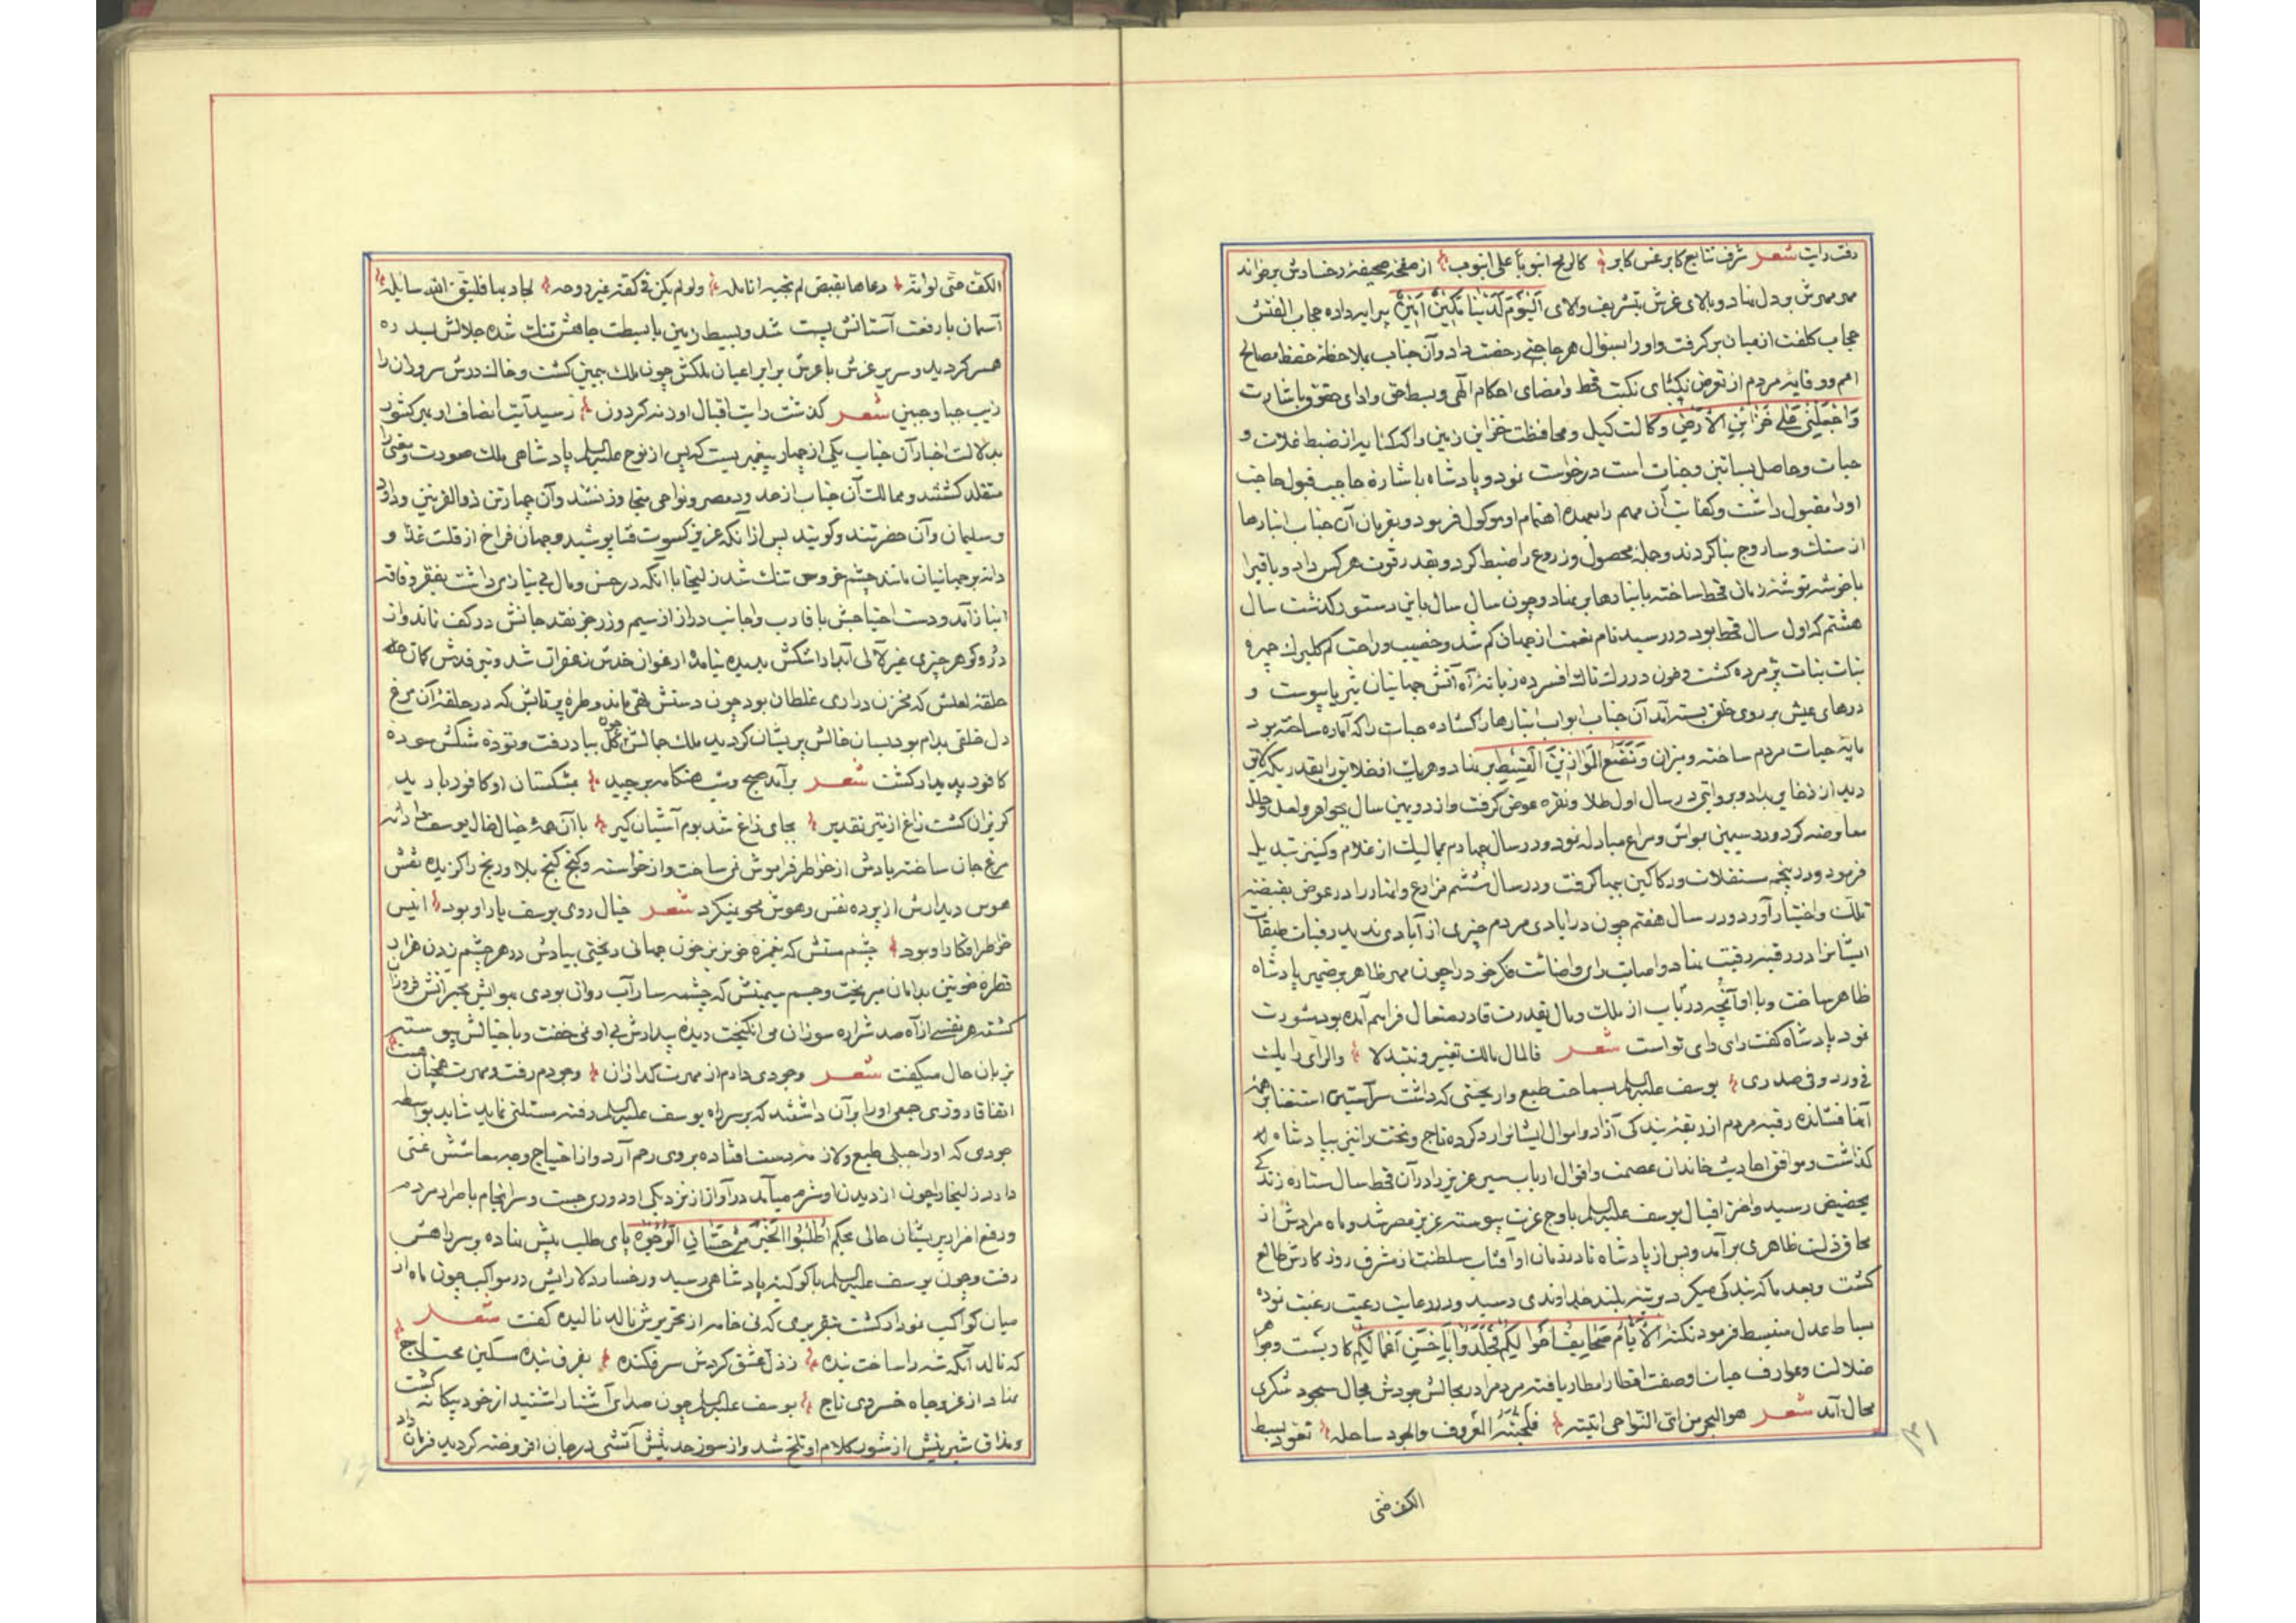 دقت رایت شعر شرف تتابع کابر عن کابر کالرمح انبوبا علی انبوب از صفحه صحیفه رخسارش برخواند
مهر مهرش بر دل نهاد و بالای عزش بتشریف والای الْیَوْمَ لَدَیْنَا مَکِینٌ أَمِینٌ پیرایه داده حجاب الفتش
حجاب کلفت از میان برگرفت و او را بسؤال هر حاجتی رخصت داد و آن جناب بملاحظه حفظ مصالح
امم و وقایه مردم از تعرض نکبای نکبت قحط و امضای احکام الهی و بسط حق و ادای حقوق باشارت
وَاجْعَلْنِی عَلَی خَزَائِنِ الْأَرْضِ وکالت کیل و محافظت خزاین زمین را که کنایه از ضبط غلات و
حبات و حاصل بساتین و جنات است درخواست نمود و پادشاه باشاره حاجب قبول حاجت
او را مقبول داشت و کفایت آن مهم را بعهده اهتمام او موکول فرمود و بفرمان آن جناب انبارها
از سنک و ساروج بنا کردند و جمله محصول و زروع را ضبط کرد و بقدر قوت هر کس داد و باقی را
با خوشه توشه زمان قحط ساخته بانبارها برنهاد و چون سال سال باین دستور گذشت سال
هشتم که اول سال قحط بود در رسید نام نعمت از جهان کم شد و خصیب و راحت کم گلبرک چهره
بنات نبات پژمرده کشت و خون در رک تاک افسرده زبانه آه آتش جهانیان بثریا پیوست و
درهای عیش بر روی خلق بسته آمد آن جناب ابواب انبارها را کشاده حبات را که آماده ساخته بود
مایه حیات مردم ساخته و میزان وَنَضَعُ الْمَوَازِینَ الْقِسْطَ بر نهاد و هر یک از خلایق را بقدریکه لایق
دید از ذخایر بداد و بروایتی در سال اول طلا و نقره عوض گرفت و از دویمین سال بجواهر و لعل و حلل
معاوضه کرد و در سیمین بمواشی و مراعی مبادله نمود و در سال چهارم بممالیک از غلام و کنیز تبدیل
فرمود و در پنجم مستغلات و دکاکین بها گرفت و در سال ششم مزارع و انهار را در عوض بقبضه
تملک و اختیار آورد و در سال هفتم چون در ایادی مردم چیزی از آبادی ندید رقبات طبقات
ایشانرا در رقبه رقیت نهاد و اصابت رای و اضائت فکر خود را چون مهر ظاهر بر ضمیر پادشاه
ظاهر ساخت و با او آنچه در باب از ملک و مال بقدرت قادر متعال فراهم آمده بود مشورت
نمود پادشاه گفت رای رای تو است شعر فالمال مالک والرأی رایک
فی ورد و فی صدری یوسف علیه السلم بسماحت طبع و اریحیتی که داشت سر آستین استغنا بر همه
آنها فشانده رقبه مردم از ربقه بندکی آزاد و اموال ایشانرا رد کرده تاج و تخت را نیز بپادشاه
گذاشت و موافق احادیث خاندان عصمت و اقوال ارباب سیر عزیز را در آن قحط سال ستاره زندکی
بحضیض رسید و اختر اقبال یوسف علیه السلم باوج عزت پیوسته عزیز مصر شد و ماه مرادش از
محاق ذلت ظاهری برآمد و پس از پادشاه نادر زمان او آفتاب سلطنت از مشرق روزکارش طالع
کشت و بعد ما که بندکی میکرد برتبه بلند خداوندی رسید و در رعایت رعیت رغبت نموده
بساط عدل منبسط فرمود نکته الْأَیَّامُ صَحَایِفُ أَحْوَالِکُمْ فَخَلِّدُوهَا بِأَحْسَنِ أَعْمَالِکُمْ کار بست
ضلالت و عوارف اقطار امطار یافته مردم را در مجالش جودش مجال سجود شکری
محال آمد شعر هو البحر من ای النواحی اتیته فلجته المعروف والجود ساحله تعود بسط
الکف حتی
۳۱
الکف حتی لو انه دعاها بقبض لم تجبه انامله ولو لم یکن فی کفه غیر روحه لجاد بها فلیتق الله سایله
آسمان با رفعت آستانش پست شد و بسیط زمین با بسطت جاهش تنک شده جلالش بسدره
همسر گردید و سریر عزش با عرش برابر اعیان ملکش چون ملک بیمین کشت و خاک درش سروران را
زیب جباه و جبین شعر گذشت رایت اقبال او ز نه گردون رسید آیت انصاف او بهر کشور
بدلالت اخبار آن جناب یکی از چهار پیغمبریست که پس از نوح علیه السلم پادشاهی ملک صورت و معنی را
متقلد کشتند و ممالک آن جناب از حدود مصر و نواحی متجاوز نشد و آن چهار تن ذوالقرنین و داود
و سلیمان و آن حضرتند و کویند پس از آنکه عزیز کسوت فنا پوشید و جهان فراخ از قلت غذا و
دانه بر جهانیان مانند چشم خروس تنک شد زلیخا با آنکه در حسن و مال بی نیازی داشت بفقر و فاقه
انباز آمد و دست احتیاجش باقارب و اجانب دراز از سیم و زر جز نقد جانش در کف نماند و از
در و کوهر چیزی غیر لآلی آبدار اشکش بدیده نیامد ارغوان خدش زعفران شد و تیر قدش کمان
حلقه لعلش که مخزن دراری غلطان بود چون دستش تهی ماند و طره پرتابش که در حلقه آن مرغ
دل خلقی بدام بود بسان حالش پریشان کردید ملک جمالش چون کل بباد رفت و توده مشکش سوده
کافور پدیدار کشت شعر برآمد صبح و شب هنکامه برچید بمشکستان او کافور بارید
کریزان کشت زاغ از تیر تقدیر بجای زاغ شد بوم آشیان کیر با آن همه خیال خال یوسف را دانه
مرغ جان ساخته یادش از خواطر فراموش نمی ساخت و از خواسته و کنج کنج بلا و رنج را کزیده نقش
هوس دیدارش از پرده نفس و هوش محو نمیکرد شعر خیال روی یوسف یار او بود انیس
خواطر افکار او بود چشم مستش که بغمزه خونریز خون جهانی ریختی بیادش در هر چشم زدن هزاران
قطره خونین بدامان میریخت و جسم سیمینش که چشمه سار آب روان بودی بهوایش مجمر آتش فروزان
کشته هر نفسی از آه صد شراره سوزان می انکیخت دیده بیدارش بی او نمی خفت و با خیالش پیوسته
بزبان حال میکفت شعر وجودی دارم از مهرت کدازان وجودم رفت و مهرت همچنان هست
اتفاقا روزی جمعی او را بر آن داشتند که بر سر راه یوسف علیه السلم رفته مسئلتی نماید شاید بواسطه
جودی که او را جبلی طبع و لازم بدست افتاده بر وی رحم آرد و از احتیاج وجه معاشش غنی
دارد زلیخا را چون از دیدن او شرم میآمد در آواز از نزدیکی او دوری جست و سرانجام باصرار مردم
و رفع اضرار پریشان حالی بحکم اُطْلُبُوا الْخَیْرَ مِنْ حِسَانِ الْوُجُوهِ پای طلب پیش نهاده بر سر راهش
رفت و چون یوسف علیه السلم با کوکبه پادشاهی رسید و رخسار دلارایش در مواکب چون ماه از
میان کواکب نمودار کشت بتقریری که نی خامه از تحریرش نالد نالیده کفت شعر
که نالد آنکه شه را ساخت بنده ز ذل عشق کردش سر فکنده بفرق بنده مسکین محتاج
نهاد از عز و جاه خسروی تاج یوسف علیه السلم چون صدای آشنا را شنید از خود بیکانه کشت
و مذاق شیرینش از شور کلام او تلخ شد و از سوز حدیثش آتشی در جان افروخته کردید فرمان داد